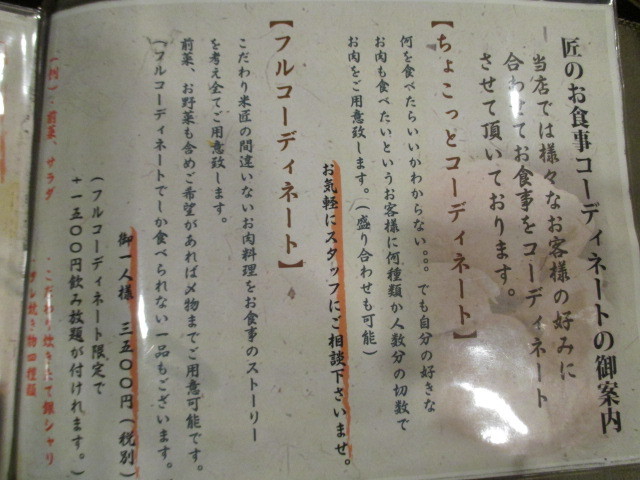 匠のお食事コーディネートの御案内
当店では様々なお客様の好みに
合わせてお食事をコーディネート
させて頂いております。
【ちょこっとコーディネート】
何を食べたらいいかわからない。。。でも自分の好きな
お肉も食べたいというお客様に何種類か人数分の切数で
お肉をご用意致します。(盛り合わせも可能)
お気軽にスタッフにご相談下さいませ。
【フルコーディネート】
こだわり米匠の間違いないお肉料理をお食事のストーリー
を考え全てご用意致します。
前菜、お野菜も含めご希望があれば〆物までご用意可能です。
(フルコーディネートでしか食べられない一品もございます。)
御一人様 三五〇〇円(税別)
(フルコーディネート限定で
+一五〇〇円飲み放題が付けれます。)
(例):前菜、サラダ
・こだわり炊きたて銀シャリ